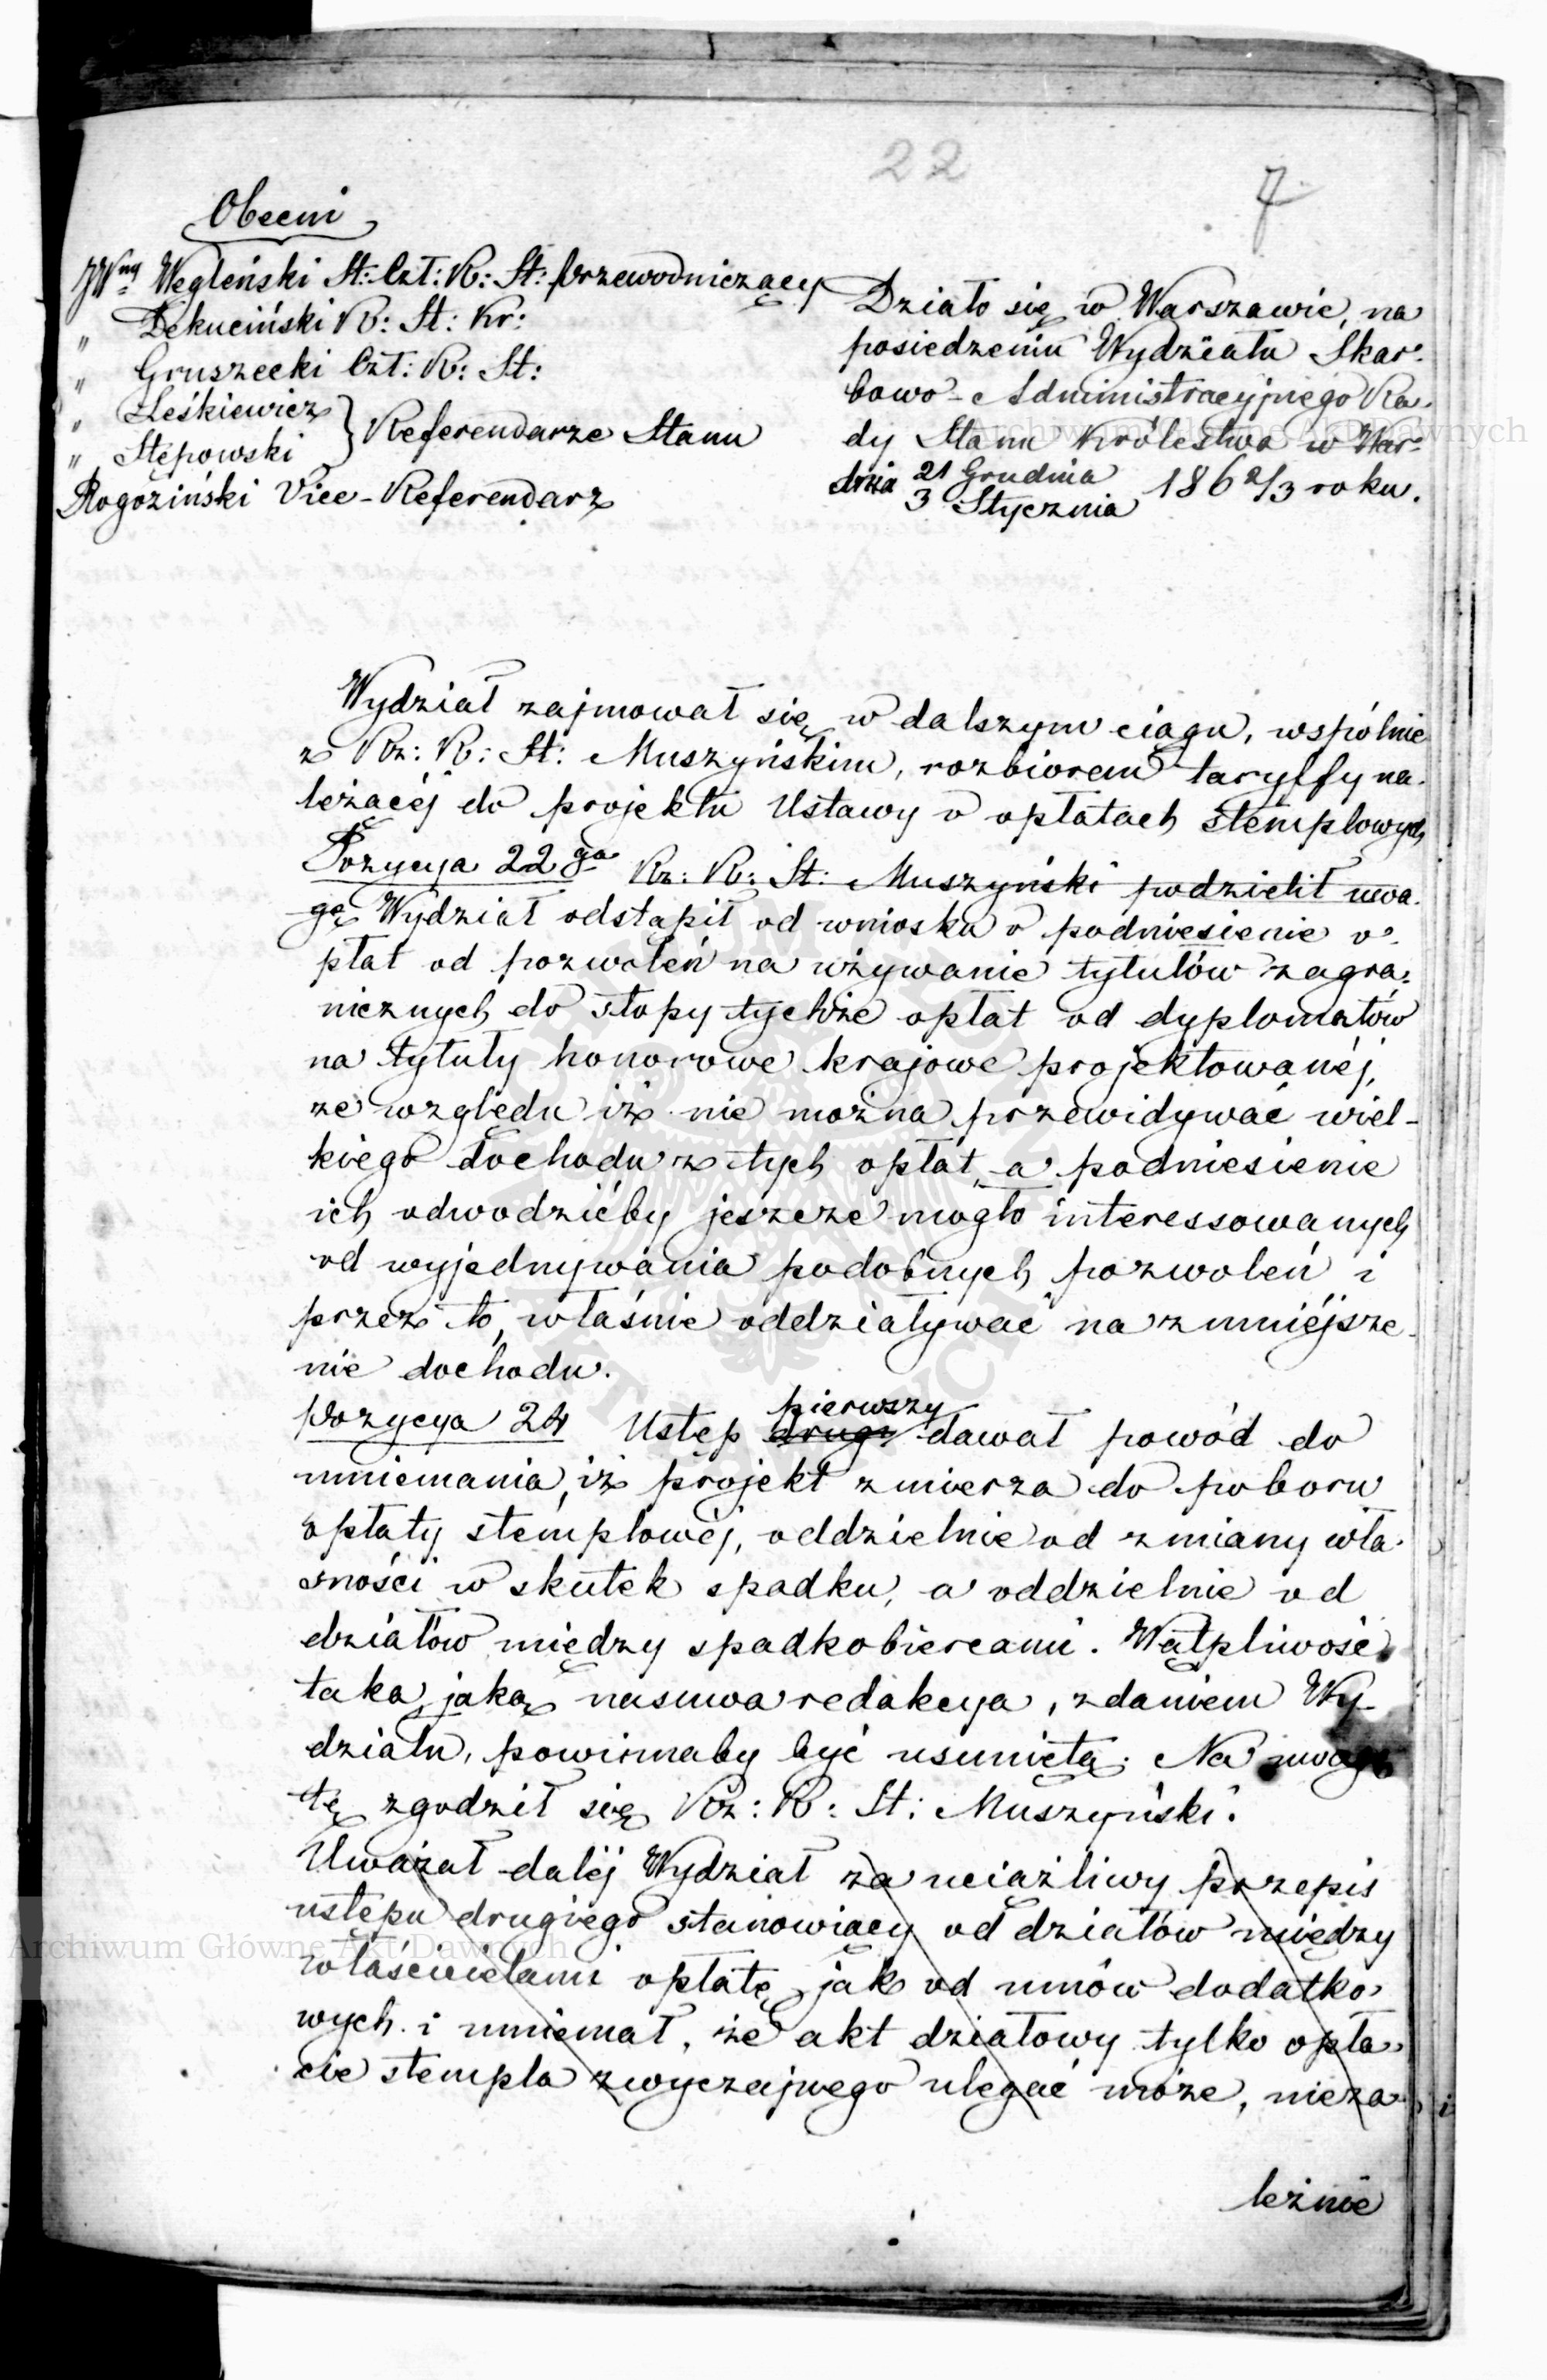 22
7
Obecni
JWny Węgleński St: Czł: R: St: Przewodniczący
„ Dekuciński R: St: Kr:
„ Gruszecki Czł: R: St:
„ Leśkiewicz
„ Stępowski } Referendarze Stanu
Rogoziński Vice-Referendarz
Działo się w Warszawie, na
posiedzeniu Wydziału Skar-
bowo-Administracyjnego Ra-
dy Stanu Królestwa w War-
dnia 21 Grudnia / 3 Stycznia 1862/3 roku.
Wydział zajmował się w dalszym ciągu, wspólnie
z Rz: R: St: Muszyńskim, rozbiorem taryffy na-
leżacéj do projektu Ustawy o opłatach stemplowych
Pozycya 22ga Rz: R: St: Muszyński podzielił uwa-
gę Wydział odstąpił od wniosku o podniesienie o-
płat od pozwoleń na używanie tytułów zagra-
nicznych do stopy tychże opłat od dyplomatów
na tytuły honorowe krajowe projektowanéj,
ze względu iż nie można przewidywać wiel-
kiego dochodu z tych opłat, a podniesienie
ich odwodzićby jeszcze mogło interessowanych
od wyjednywania podobnych pozwoleń i
przez to właśnie oddziaływać na zmniéjsze-
nie dochodu.
Pozycya 24 Ustęp drugi pierwszy dawał powód do
mniemania, iż projekt zmierza do poboru
opłaty stemplowéj, oddzielnie od zmiany wła-
sności w skutek spadku, a oddzielnie od
działów między spadkobiercami. Wątpliwość
taka jaką nasuwa redakcya, zdaniem Wy-
działu, powinnaby być usuniętą. Na uwagę
tę zgodził się Rz: R: St: Muszyński.
Uważał daléj Wydział za uciążliwy przepis
ustępu drugiego stanowiący od działów między
właścicielami opłatę jak od umów dodatko-
wych i mniemał, że akt działowy tylko opła-
cie stempla zwyczajnego ulegać może, nieza-
leżnie
Archiwum Główne Akt Dawnych
Archiwum Główne Akt Dawnych